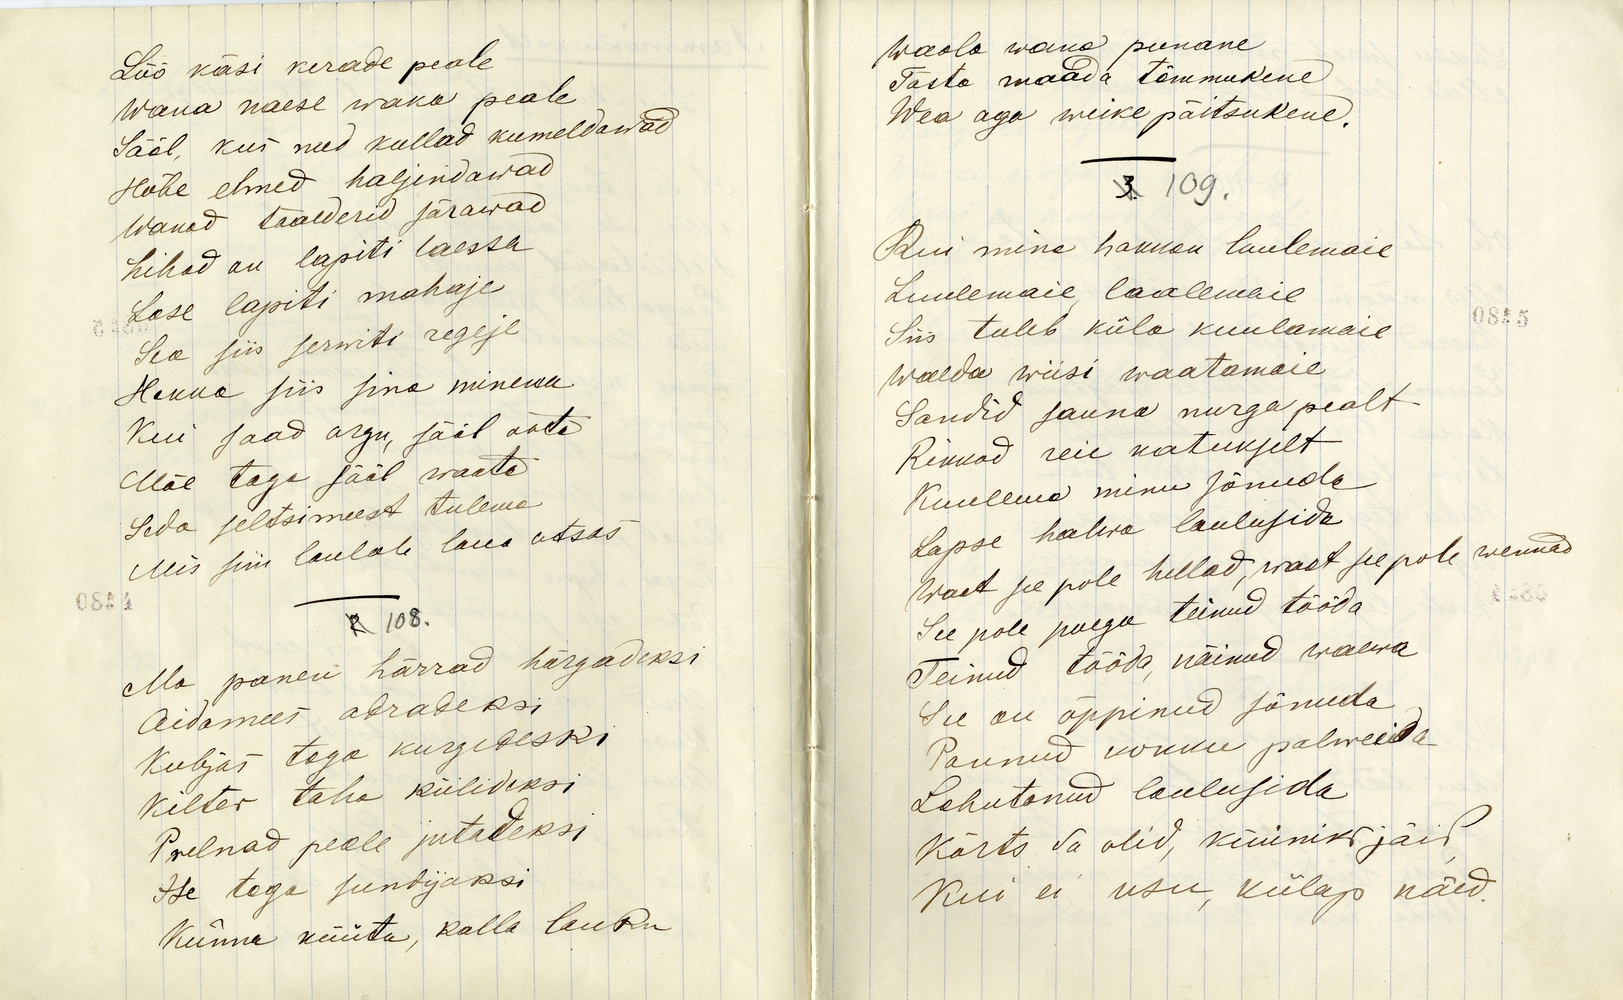 Löö käsi kerade peale
Wana naese waka peale
Sääl, kus need kullad kumeldawad
Hõbe elmed haljendawad
Wanad taalderid särawad
Lihad on lapiti laessa
Lase lapiti mahaje
Sea siis serwiti regeje
Hakka siis sina minema
Kui saad orgu, sääl oota
Mäe taga sääl waata
Seda seltsimeest tulema
Mis siin laulab laua otsas
2 108.
Ma panen härrad härgadeksi
Aidamees adradeksi
Kubjas taga kurgedeski
Kilter taha küilideksi
Preilnad peale jutadeksi
Ise taga sundijaksi
Künna nüüta, kalla lauku
Waola wana punane
Tõsta maada tõmmukene
Wea aga weike päitsukene.
3. 109.
Kui mina hakkan laulemaie
Laulemaie, laalemaie
Siis tuleb küla kuulamaie
Walda wiisi waatamaie
Sandid sauna nurga pealt
Rikkad reie katukselt
Kuulema minu sõnuda
Lapse halwa laulusida
Waat see pole hellad, waat see pole wennad
See pole poega teinud tööda
Teinud tööda, näinud waewa
See on õppinud sõnuda
Pannud kokku palweida
Lahutanud laulusida
Kõrts sa olid, küüniks jäid
Kui ei usu, külap näed.
0845